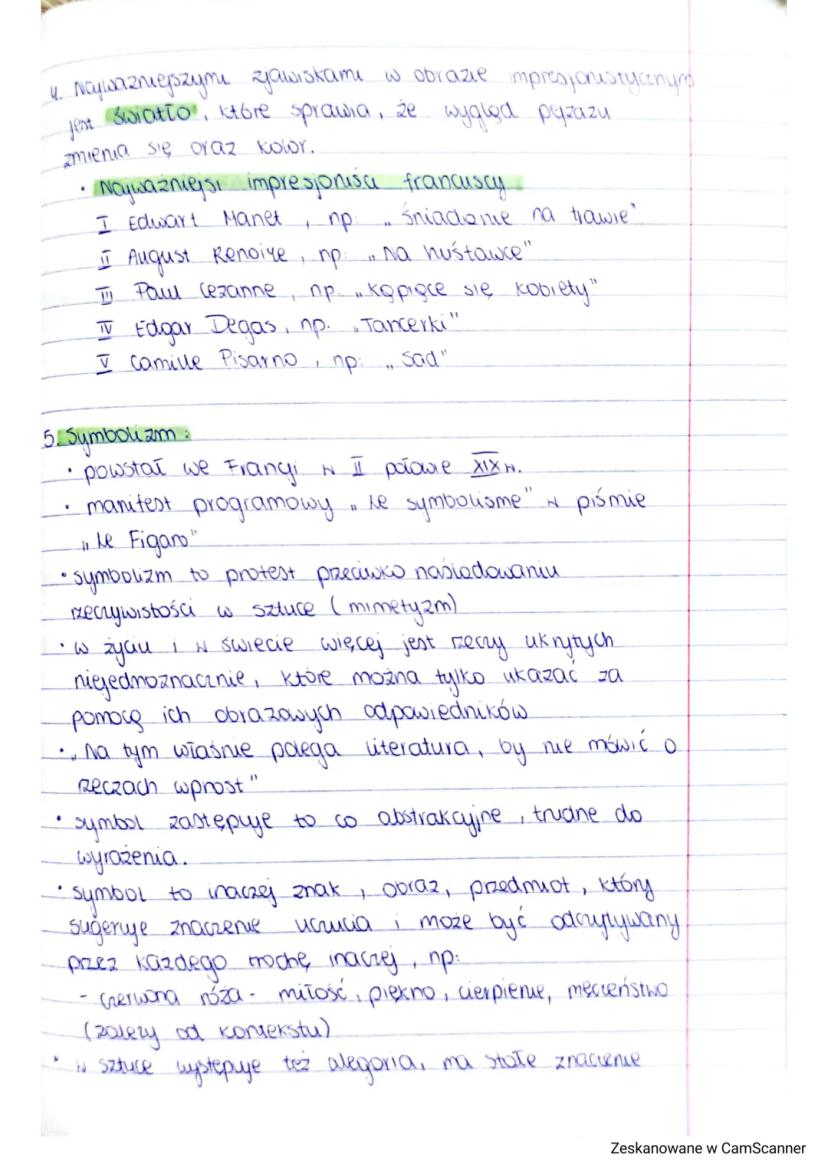 4. Najważniejszymi zjawiskami w obrazie impresjonistycznym
jest światło, które sprawia, że wygląd pejzażu
zmienia się oraz kolor.
• Najważniejsi impresjoniści francuscy
I Edwart Manet, np. „Śniadanie na trawie"
II August Renoire, np. „Na huśtawce"
III Paul Cezanne, np. „Kąpiące się kobiety"
IV Edgar Degas, np. „Tancerki"
V Camille Pisarno, np. „Sad"
5. Symbolizm:
• powstał we Francji w II połowie XIX w.
• manifest programowy „Le symbolisme" w piśmie
„Le Figaro"
• symbolizm to protest przeciwko naśladowaniu
rzeczywistości w sztuce (mimetyzm)
• w życiu i w świecie więcej jest rzeczy ukrytych
niejednoznacznie, które można tylko ukazać za
pomocą ich obrazowych odpowiedników
• „Na tym właśnie polega literatura, by nie mówić o
rzeczach wprost"
• symbol zastępuje to co abstrakcyjne, trudne do
wyrażenia.
• symbol to inaczej znak, obraz, przedmiot, który
sugeruje znaczenie uczucia i może być odczytywany
przez każdego trochę inaczej, np:
- czerwona róża - miłość, piękno, cierpienie, męczeństwo
(zależy od kontekstu)
• w sztuce występuje też alegoria, ma stałe znaczenie
Zeskanowane w CamScanner